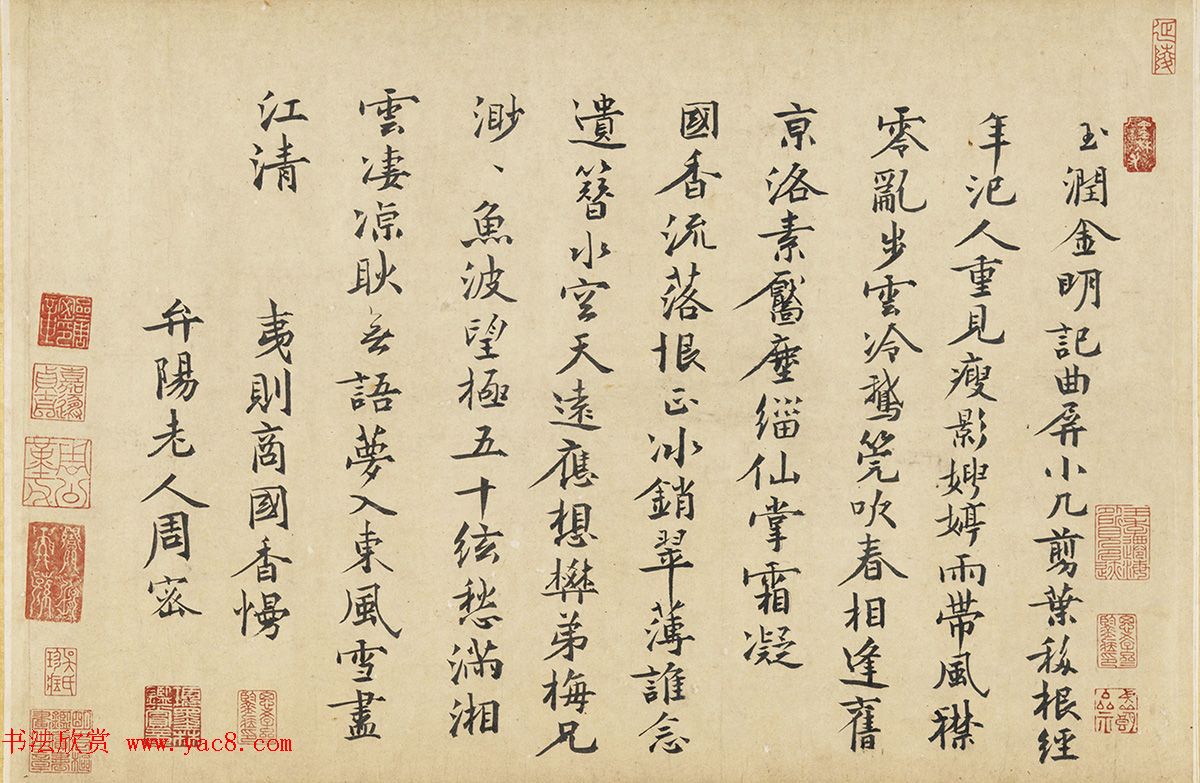 玉潤金明記曲屏小几剪葉移根經
年汜人重見瘦影娉婷雨帶風襟
零亂步雲冷鵝筦吹春相逢舊
京洛素靨塵緇仙掌霜凝
國香流落恨正冰銷翠薄誰念
遺簪水空天遠應想礬弟梅兄
渺、魚波望極五十絃愁滿湘
雲凄凉耿無語夢入東風雪盡
江清
夷則商國香慢
弁陽老人周密
书法欣赏 www.yac8.com